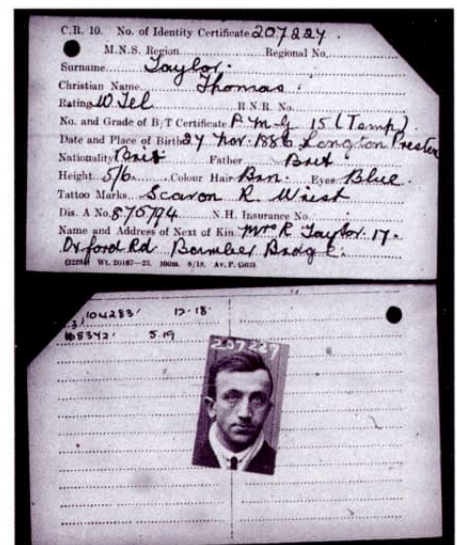 C.R. 10. No. of Identity Certificate 207229.
M.N.S. Region Regional No.
Surname Taylor.
Christian Name Thomas
Rating W. Tel R.N.R. No.
No. and Grade of B/T Certificate P.M.G. 15 (Temp)
Date and Place of Birth 27 Nov. 1886 Longton Preston
Nationality Brit Father Brit
Height 5/6 Colour Hair Brn. Eyes Blue.
Tattoo Marks Scar on R. Wrist
Dis. A No. 875794 N.H. Insurance No.
Name and Address of Next of Kin. Mrs R Taylor. 17.
Oxford Rd Bamber
Wt. 20167—23. 100m. 8/18. Av. P.
104283 12-18.
5.19
207229